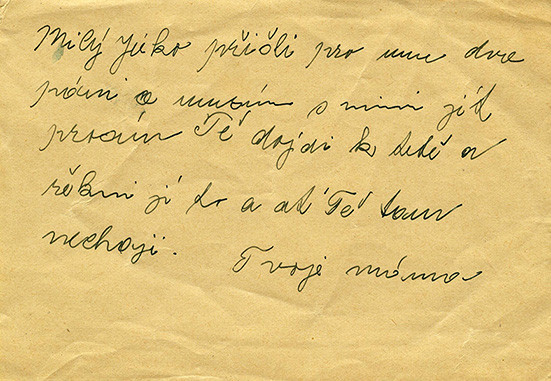 Milý Júko přišli pro mne dva
páni a musím s nimi jít
prosím Tě dojdi k tetě a
řěkni jí to a ať Tě tam
nechají.
Tvoje máma